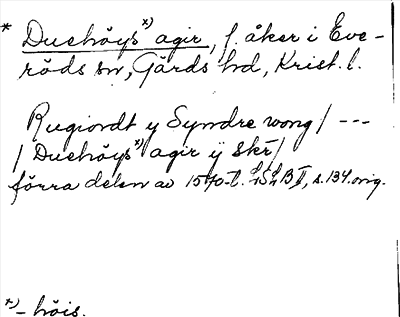 * Duehöys*) agir, f. åker i Eve-
röds sn, Gärds hd, Krist. l.
Rugiordt y Syndre wong / ---
/ Duehöys*) agir ÿ skr /
förra delen av 1570-t. LSB II, s. 134. orig.
*) - höis.